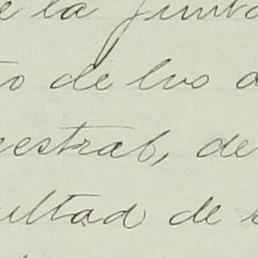 e la Junta
to de los a
estral, de
ultad de